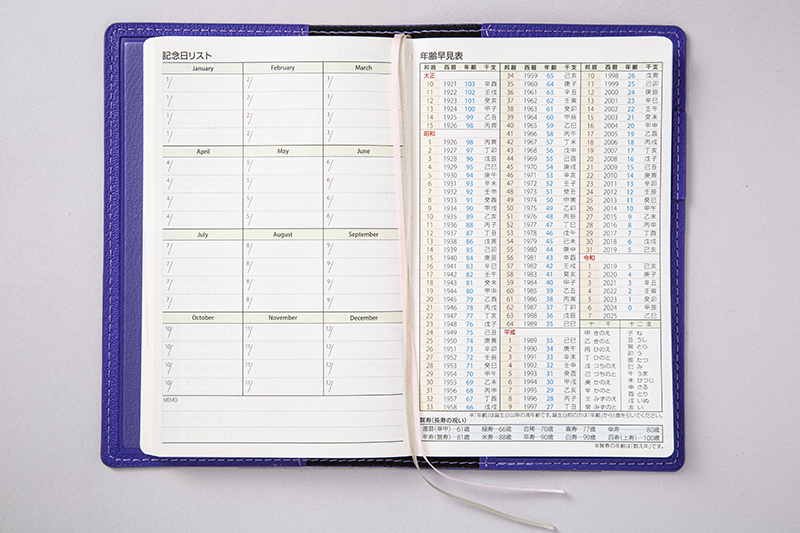 記念日リスト
January February March
1/ 2/ 3/
1/ 2/ 3/
1/ 2/ 3/
1/ 2/ 3/
April May June
4/ 5/ 6/
4/ 5/ 6/
4/ 5/ 6/
4/ 5/ 6/
July August September
7/ 8/ 9/
7/ 8/ 9/
7/ 8/ 9/
7/ 8/ 9/
October November December
10/ 11/ 12/
10/ 11/ 12/
10/ 11/ 12/
10/ 11/ 12/
MEMO
年齢早見表
邦暦 西暦 年齢 干支
大正
10 1921 103 辛酉
11 1922 102 壬戌
12 1923 101 癸亥
13 1924 100 甲子
14 1925 99 乙丑
15 1926 98 丙寅
昭和
1 1926 98 丙寅
2 1927 97 丁卯
3 1928 96 戊辰
4 1929 95 己巳
5 1930 94 庚午
6 1931 93 辛未
7 1932 92 壬申
8 1933 91 癸酉
9 1934 90 甲戌
10 1935 89 乙亥
11 1936 88 丙子
12 1937 87 丁丑
13 1938 86 戊寅
14 1939 85 己卯
15 1940 84 庚辰
16 1941 83 辛巳
17 1942 82 壬午
18 1943 81 癸未
19 1944 80 甲申
20 1945 79 乙酉
21 1946 78 丙戌
22 1947 77 丁亥
23 1948 76 戊子
24 1949 75 己丑
25 1950 74 庚寅
26 1951 73 辛卯
27 1952 72 壬辰
28 1953 71 癸巳
29 1954 70 甲午
30 1955 69 乙未
31 1956 68 丙申
32 1957 67 丁酉
33 1958 66 戊戌
邦暦 西暦 年齢 干支
34 1959 65 己亥
35 1960 64 庚子
36 1961 63 辛丑
37 1962 62 壬寅
38 1963 61 癸卯
39 1964 60 甲辰
40 1965 59 乙巳
41 1966 58 丙午
42 1967 57 丁未
43 1968 56 戊申
44 1969 55 己酉
45 1970 54 庚戌
46 1971 53 辛亥
47 1972 52 壬子
48 1973 51 癸丑
49 1974 50 甲寅
50 1975 49 乙卯
51 1976 48 丙辰
52 1977 47 丁巳
53 1978 46 戊午
54 1979 45 己未
55 1980 44 庚申
56 1981 43 辛酉
57 1982 42 壬戌
58 1983 41 癸亥
59 1984 40 甲子
60 1985 39 乙丑
61 1986 38 丙寅
62 1987 37 丁卯
63 1988 36 戊辰
64 1989 35 己巳
平成
1 1989 35 己巳
2 1990 34 庚午
3 1991 33 辛未
4 1992 32 壬申
5 1993 31 癸酉
6 1994 30 甲戌
7 1995 29 乙亥
8 1996 28 丙子
9 1997 27 丁丑
邦暦 西暦 年齢 干支
10 1998 26 戊寅
11 1999 25 己卯
12 2000 24 庚辰
13 2001 23 辛巳
14 2002 22 壬午
15 2003 21 癸未
16 2004 20 甲申
17 2005 19 乙酉
18 2006 18 丙戌
19 2007 17 丁亥
20 2008 16 戊子
21 2009 15 己丑
22 2010 14 庚寅
23 2011 13 辛卯
24 2012 12 壬辰
25 2013 11 癸巳
26 2014 10 甲午
27 2015 9 乙未
28 2016 8 丙申
29 2017 7 丁酉
30 2018 6 戊戌
31 2019 5 己亥
令和
1 2019 5 己亥
2 2020 4 庚子
3 2021 3 辛丑
4 2022 2 壬寅
5 2023 1 癸卯
6 2024 0 甲辰
7 2025 乙巳
十干
甲 きのえ
乙 きのと
丙 ひのえ
丁 ひのと
戊 つちのえ
己 つちのと
庚 かのえ
辛 かのと
壬 みずのえ
癸 みずのと
十二支
子 ね
丑 うし
寅 とら
卯 う
辰 たつ
巳 み
午 うま
未 ひつじ
申 さる
酉 とり
戌 いぬ
亥 い
※「年齢」は誕生日以降の満年齢です。誕生日前の方は「年齢」から1歳を引いてください。
賀寿(長寿の祝い)
還暦(華甲)…61歳 緑寿…66歳 古稀…70歳 喜寿…77歳 傘寿…80歳
半寿(盤寿)…81歳 米寿…88歳 卒寿…90歳 白寿…99歳 百寿(上寿)…100歳
※賀寿の年齢は「数え年」です。